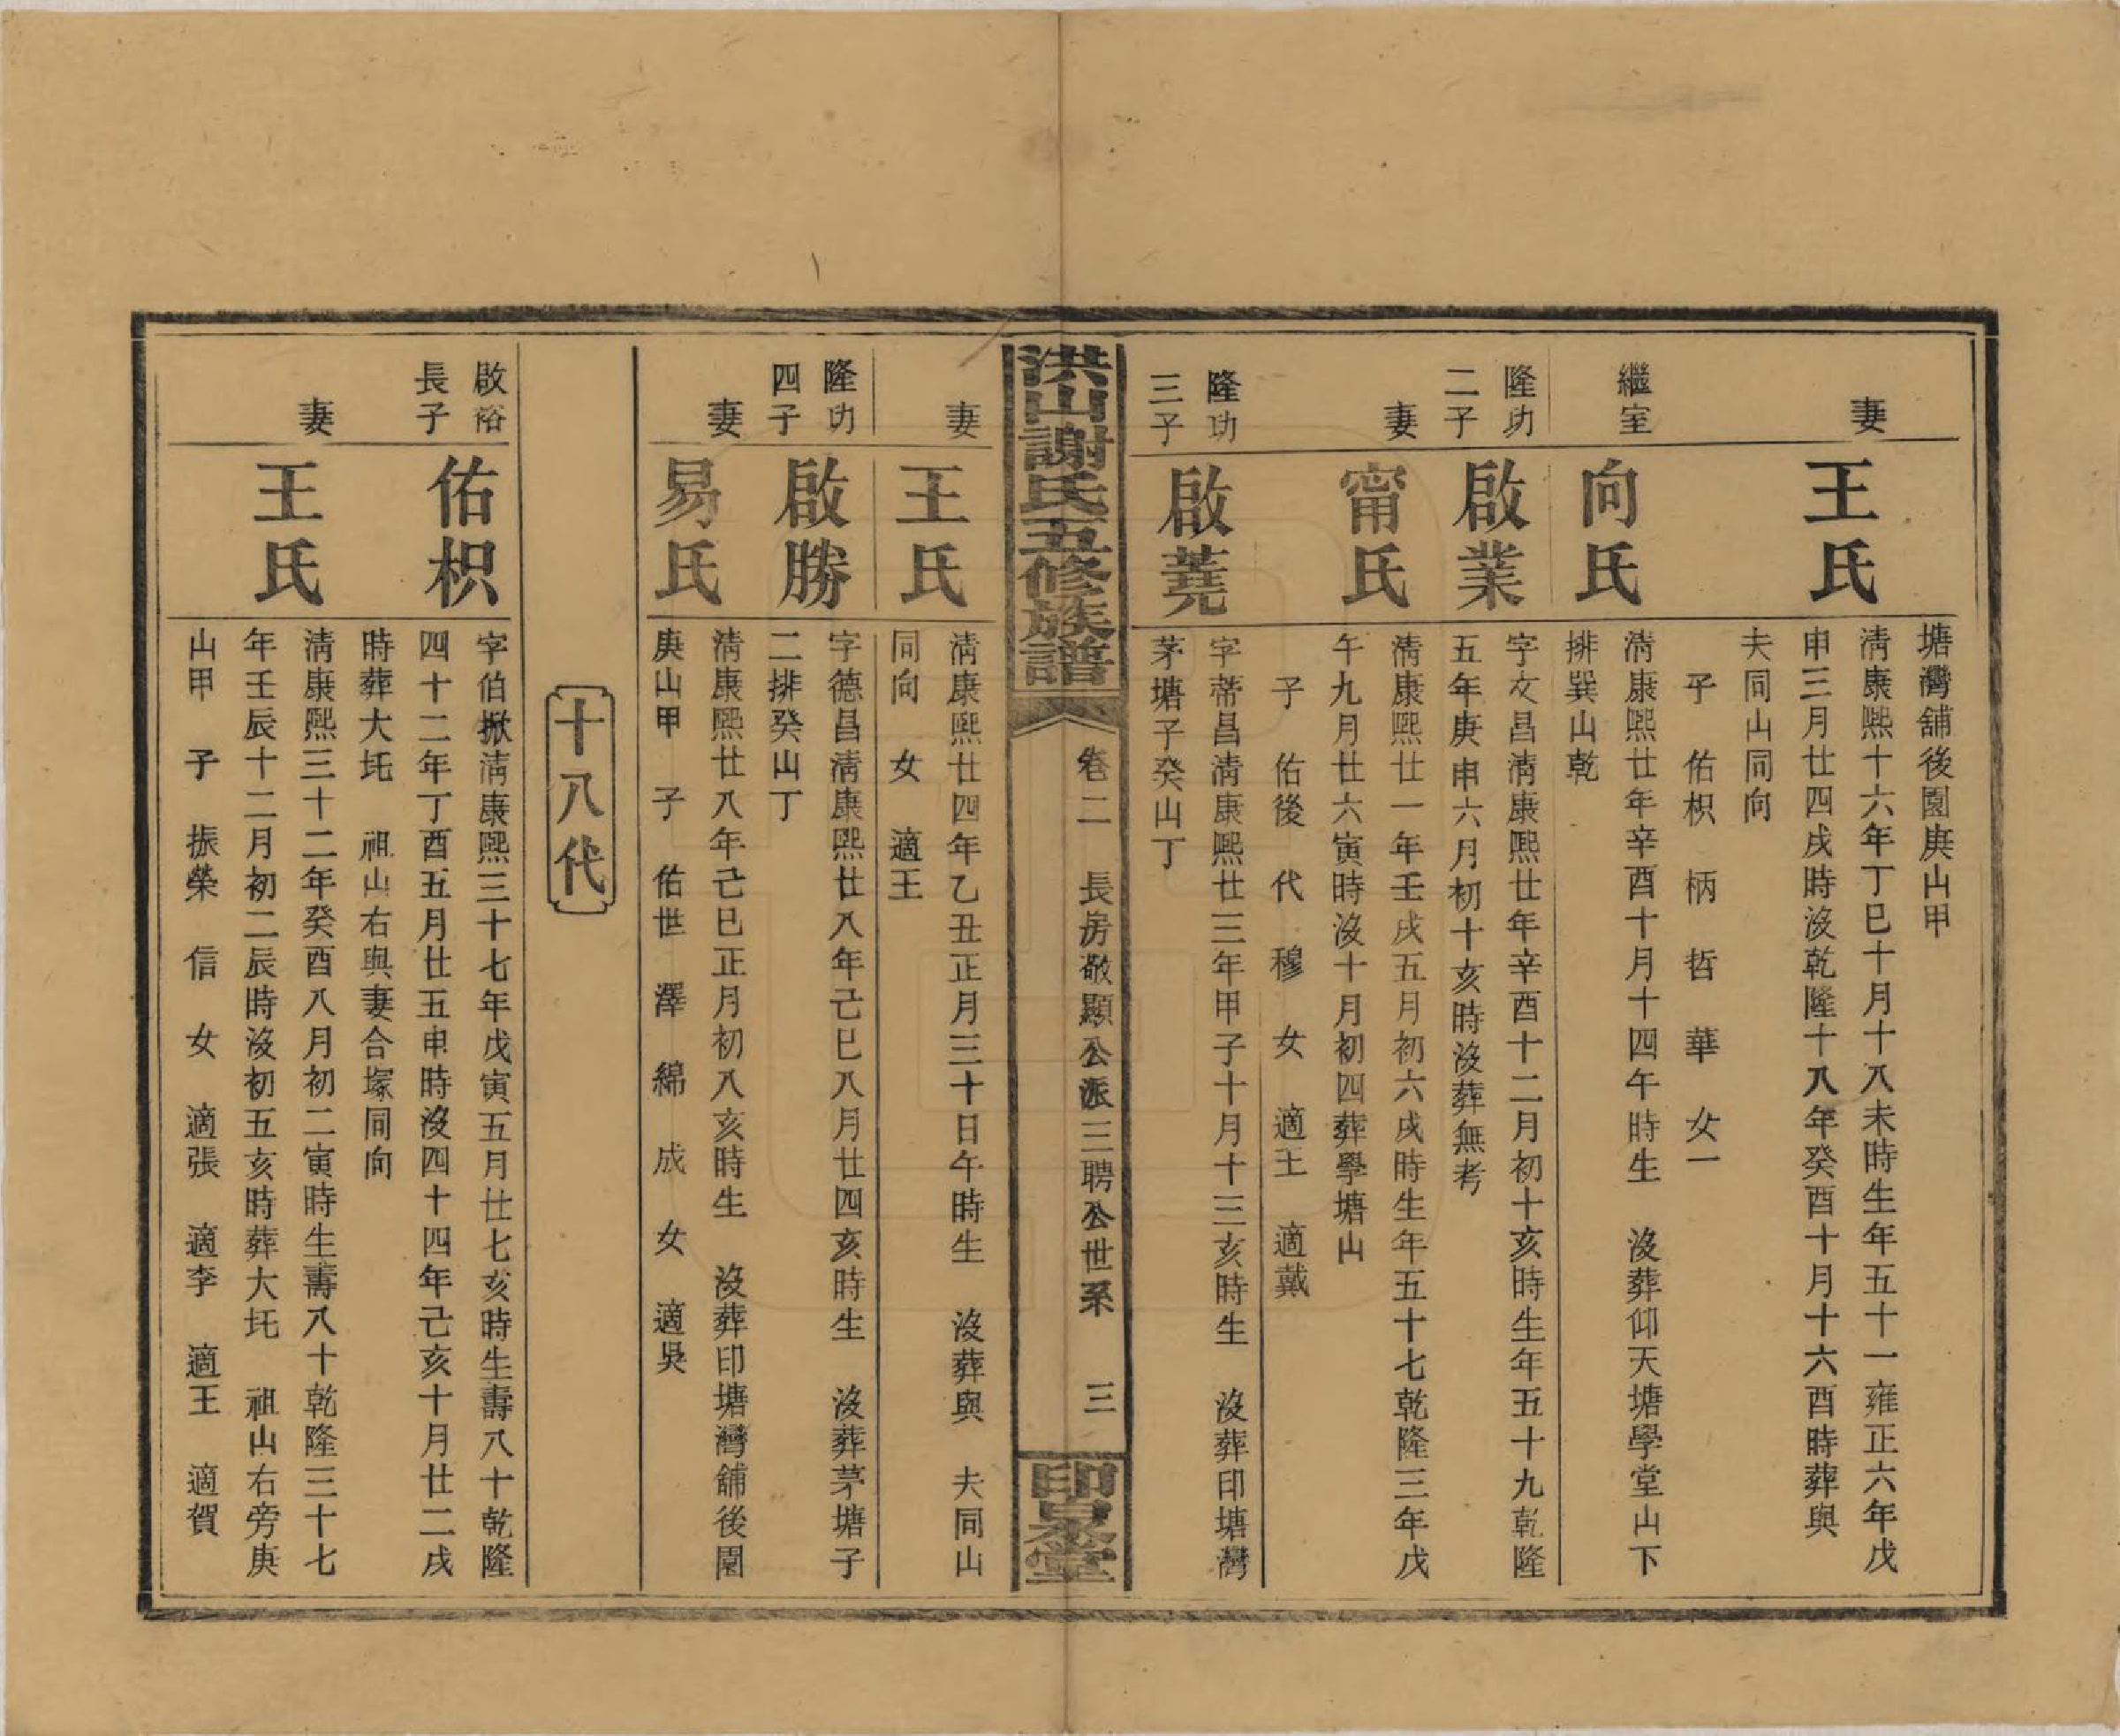 塘灣舖後園庚山甲
妻
王氏
淸康熙十六年丁巳十月十八未時生年五十一雍正六年戊
申三月廿四戌時沒乾隆十八年癸酉十月十六酉時葬與
夫同山同向
子 佑枳 柄 哲 華 女一
繼室
向氏
淸康熙廿年辛酉十月十四午時生 沒葬仰天塘學堂山下
排巽山乾
隆功
二子
啟業
字文昌淸康熙廿年辛酉十二月初十亥時生年五十九乾隆
五年庚申六月初十亥時沒葬無考
妻
甯氏
淸康熙廿一年壬戌五月初六戌時生年五十七乾隆三年戊
午九月廿六寅時沒十月初四葬學塘山
子 佑後 代 穆 女 適王 適戴
隆功
三子
啟蕘
字蒂昌淸康熙廿三年甲子十月十三亥時生 沒葬印塘灣
茅塘子癸山丁
洪山謝氏五修族譜
卷二 長房敬顯公派三聘公世系 三
印泉堂
妻
王氏
淸康熙廿四年乙丑正月三十日午時生 沒葬與 夫同山
同向 女 適王
隆功
四子
啟勝
字德昌淸康熙廿八年己巳八月廿四亥時生 沒葬茅塘子
二排癸山丁
妻
易氏
淸康熙廿八年己巳正月初八亥時生 沒葬印塘灣舖後園
庚山甲 子 佑世 澤 綿 成 女 適吳
十八代
啟裕
長子
佑枳
字伯掀淸康熙三十七年戊寅五月廿七亥時生壽八十乾隆
四十二年丁酉五月廿五申時沒四十四年己亥十月廿二戌
時葬大圫 祖山右與妻合塚同向
妻
王氏
淸康熙三十二年癸酉八月初二寅時生壽八十乾隆三十七
年壬辰十二月初二辰時沒初五亥時葬大圫 祖山右旁庚
山甲 子 振榮 信 女 適張 適李 適王 適賀